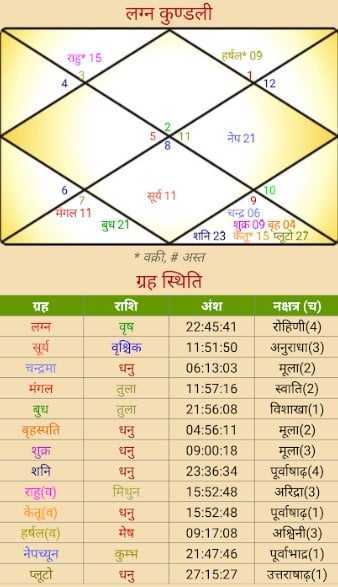 लग्न कुण्डली
राहु* 15
हर्षल* 09
3
1
4
12
2
5
11
8
नेप 21
6
10
7
9
सूर्य 11
मंगल 11
चन्द्र 06
बुध 21
शुक्र 09 बृह 04
शनि 23 केतु* 15 प्लूटो 27
* वक्री, # अस्त
ग्रह स्थिति
ग्रह राशि अंश नक्षत्र (च)
लग्न वृष 22:45:41 रोहिणी(4)
सूर्य वृश्चिक 11:51:50 अनुराधा(3)
चन्द्रमा धनु 06:13:03 मूला(2)
मंगल तुला 11:57:16 स्वाति(2)
बुध तुला 21:56:08 विशाखा(1)
बृहस्पति धनु 04:56:11 मूला(2)
शुक्र धनु 09:00:18 मूला(3)
शनि धनु 23:36:34 पूर्वाषाढ़(4)
राहु(व) मिथुन 15:52:48 अरिद्रा(3)
केतू(व) धनु 15:52:48 पूर्वाषाढ़(1)
हर्षल(व) मेष 09:17:08 अश्विनी(3)
नेपच्यून कुम्भ 21:47:46 पूर्वाभाद्र(1)
प्लूटो धनु 27:15:27 उत्तराषाढ़(1)